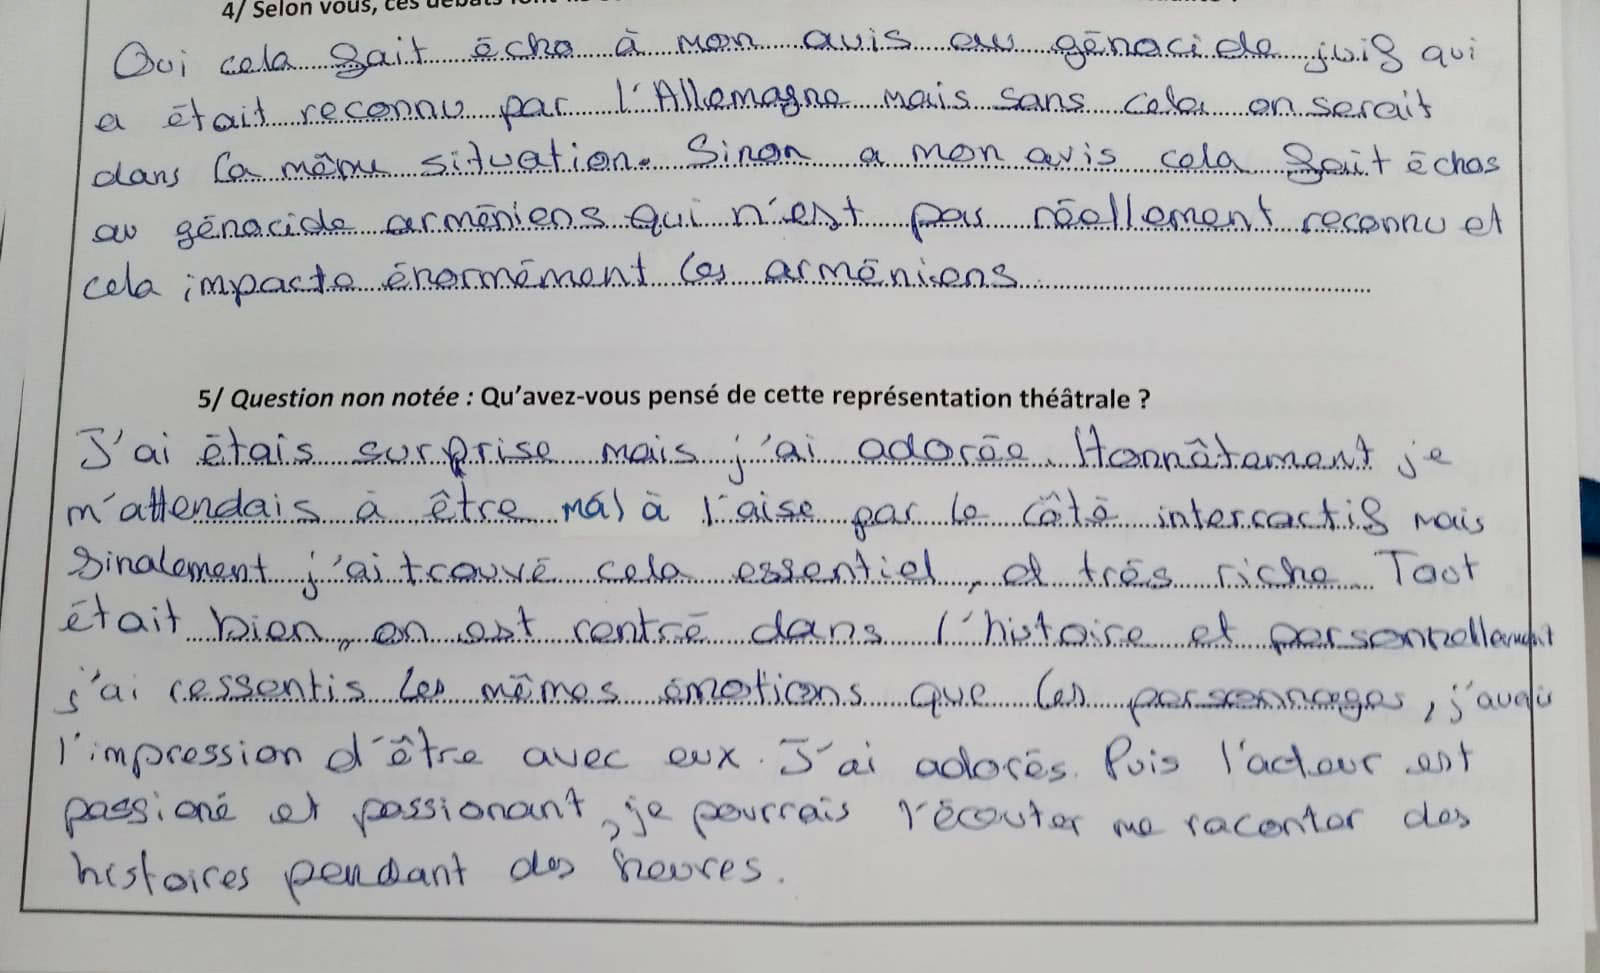 4/ Selon vous, ces débats font
Oui cela fait écho à mon avis au génocide juif qui
a était reconnu par l'Allemagne mais sans cela on serait
dans la même situation. Sinon a mon avis cela fait échos
au génocide arméniens qui n'est pas réellement reconnu et
cela impacte énormément les arméniens
5/ Question non notée : Qu'avez-vous pensé de cette représentation théâtrale ?
J'ai étais surprise mais j'ai adorée. Honnâtement je
m'attendais à être mal à l'aise par le côté interractif mais
finalement j'ai trouvé cela essentiel, et très riche. Tout
était bien, on est rentré dans l'histoire et personnellement
j'ai ressentis les mêmes émotions que les personnages, j'avais
l'impression d'être avec eux. J'ai adorés. Puis l'acteur est
passioné et passionant, je pourrais l'écouter me raconter des
histoires pendant des heures.